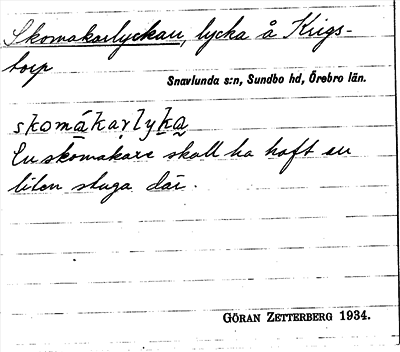 Skomakarlyckan, lycka å Krigs-
torp
Snavlunda s:n, Sundbo hd, Örebro län.
skomákaṛlyka
En skomakare skall ha haft en
liten stuga där.
GÖRAN ZETTERBERG 1934.